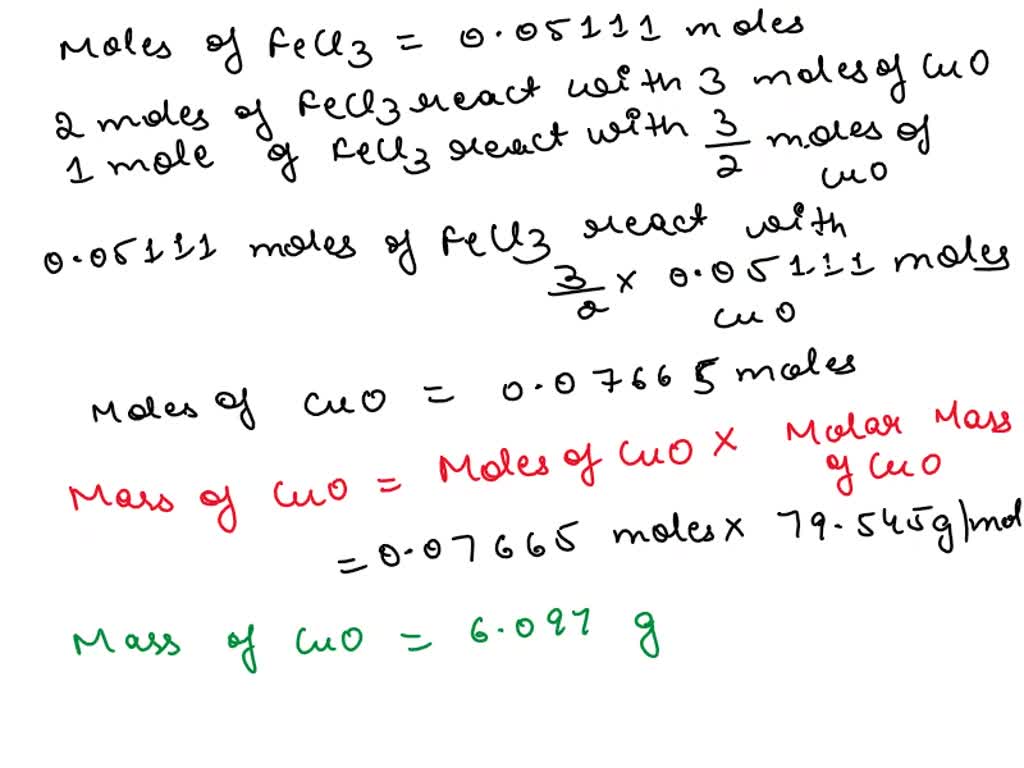 Moles of FeCl3 = 0.05111 moles
2 moles of FeCl3 react with 3 moles of CuO
1 mole of FeCl3 react with 3/2 moles of
CuO
0.05111 moles of FeCl3 react with
3/2 × 0.05111 moles
CuO
Moles of CuO = 0.07665 moles
Mass of CuO = Moles of CuO × Molar Mass
of CuO
= 0.07665 moles × 79.545g/mol
Mass of CuO = 6.097 g